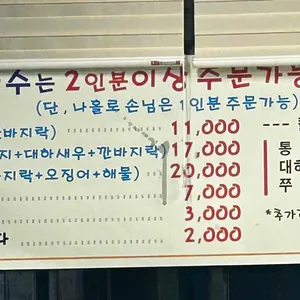 수는 2인분이상 주문가능
(단, 나홀로 손님은 1인분 주문가능)
바지락) 11,000 ---
지+대하새우+깐바지락) 17,000 통
지락+오징어+해물) 20,000 대하
7,000 쭈
3,000 *추가
다 2,000